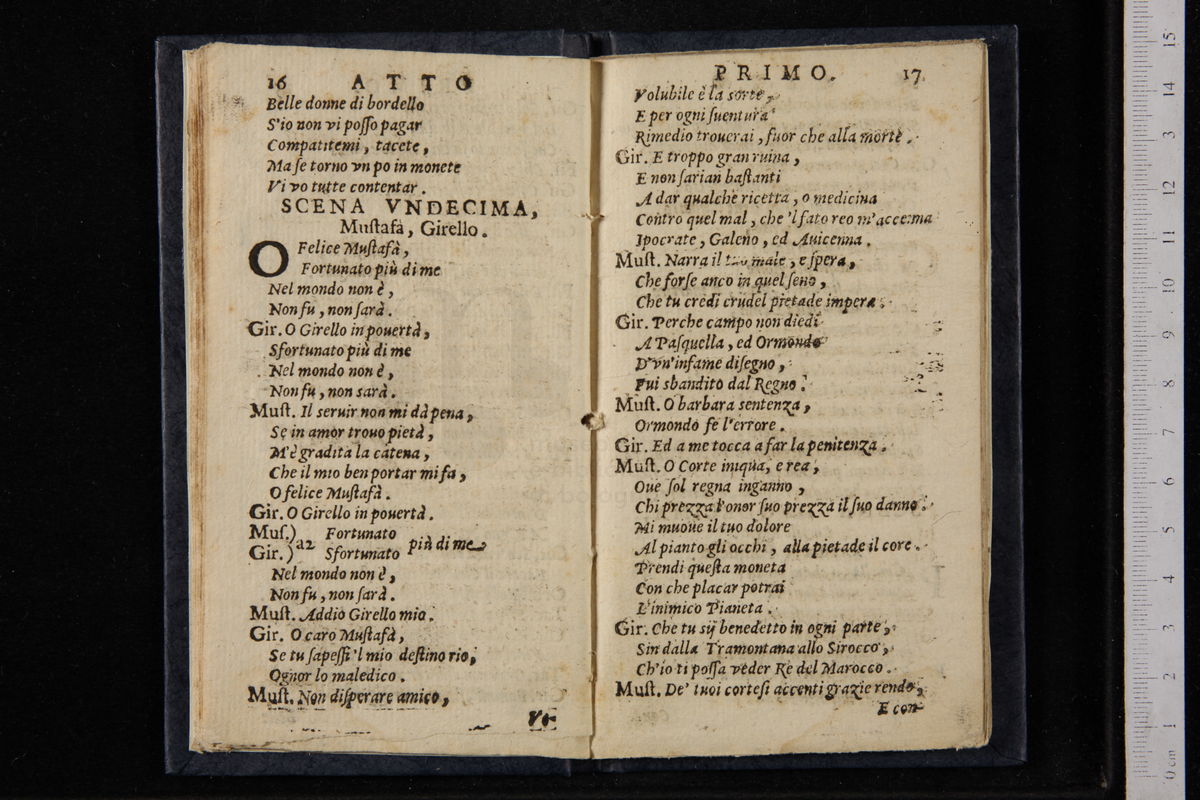 16 ATTO
Belle donne di bordello
S'io non vi poſſo pagar
Compatitemi, tacete,
Ma ſe torno vn po in monete
Vi vo tutte contentar.
SCENA VNDECIMA,
Muſtafà, Girello.
O Felice Muſtafà,
Fortunato più di me
Nel mondo non è,
Non fu, non ſarà.
Gir. O Girello in pouertà,
Sfortunato più di me
Nel mondo non è,
Non fu, non sarà.
Muſt. Il seruir non mi dà pena,
Se in amor trouo pietà,
M'è gradita la catena,
Che il mio ben portar mi fa,
O felice Muſtafà.
Gir. O Girello in pouertà.
Muſ.) Fortunato
a2 più di me
Gir.) Sfortunato
Nel mondo non è,
Non fu, non ſarà.
Muſt. Addio Girello mio.
Gir. O caro Muſtafà,
Se tu ſapeſſi 'l mio deſtino rio,
Ognor lo maledico.
Muſt. Non diſperare amico,
Vo-
PRIMO. 17
Volubile è la sorte,
E per ogni ſuentura
Rimedio trouerai, fuor che alla morte.
Gir. E troppo gran ruina,
E non ſarian baſtanti
A dar qualche ricetta, o medicina
Contro quel mal, che 'l fato reo m'accenna
Ipocrate, Galeno, ed Auicenna.
Muſt. Narra il tuo male, e ſpera,
Che forſe anco in quel ſeno,
Che tu credi crudel pietade impera.
Gir. Perche campo non diedi
A Paſquella, ed Ormondo
D'vn'infame diſegno,
Fui sbandito dal Regno.
Muſt. O barbara sentenza,
Ormondo fe l'errore.
Gir. Ed a me tocca a far la penitenza.
Muſt. O Corte iniqua, e rea,
Oue ſol regna inganno,
Chi prezza l'onor ſuo prezza il ſuo danno.
Mi muoue il tuo dolore
Al pianto gli occhi, alla pietade il core.
Prendi queſta moneta
Con che placar potrai
L'inimico Pianeta.
Gir. Che tu sij benedetto in ogni parte,
Sin dalla Tramontana allo Sirocco,
Ch'io ti poſſa veder Re del Marocco.
Muſt. De' tuoi corteſi accenti grazie rendo,
E con